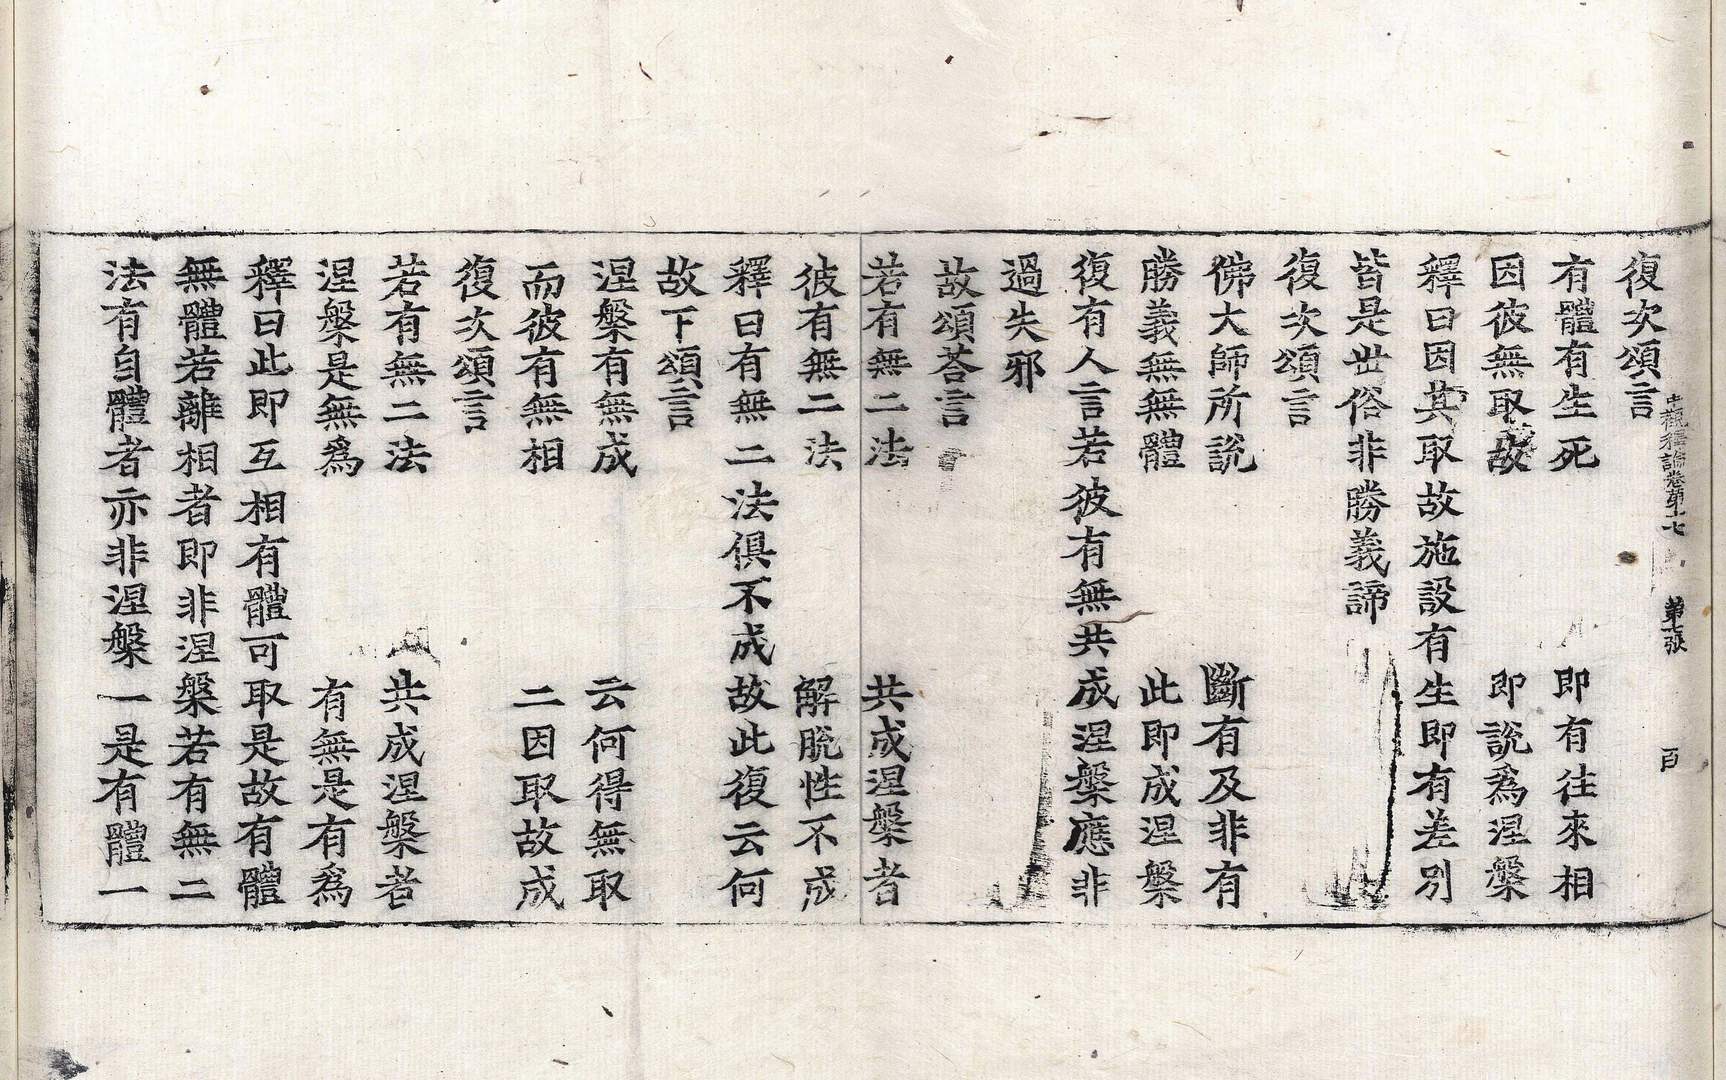 中觀釋論卷第十七 第七張 百
復次頌言
有體有生死 即有往來相
因彼無取故 即說爲涅槃
釋曰因其取故施設有生即有差別
皆是世俗非勝義諦
復次頌言
佛大師所說 斷有及非有
勝義無無體 此即成涅槃
復有人言若彼有無共成涅槃應非
過失邪
故頌荅言
若有無二法 共成涅槃者
彼有無二法 解脫性不成
釋曰有無二法俱不成故此復云何
故下頌言
涅槃有無成 云何得無取
而彼有無相 二因取故成
復次頌言
若有無二法 共成涅槃者
涅槃是無爲 有無是有爲
釋曰此即互相有體可取是故有體
無體若離相者即非涅槃若有無二
法有自體者亦非涅槃一是有體一